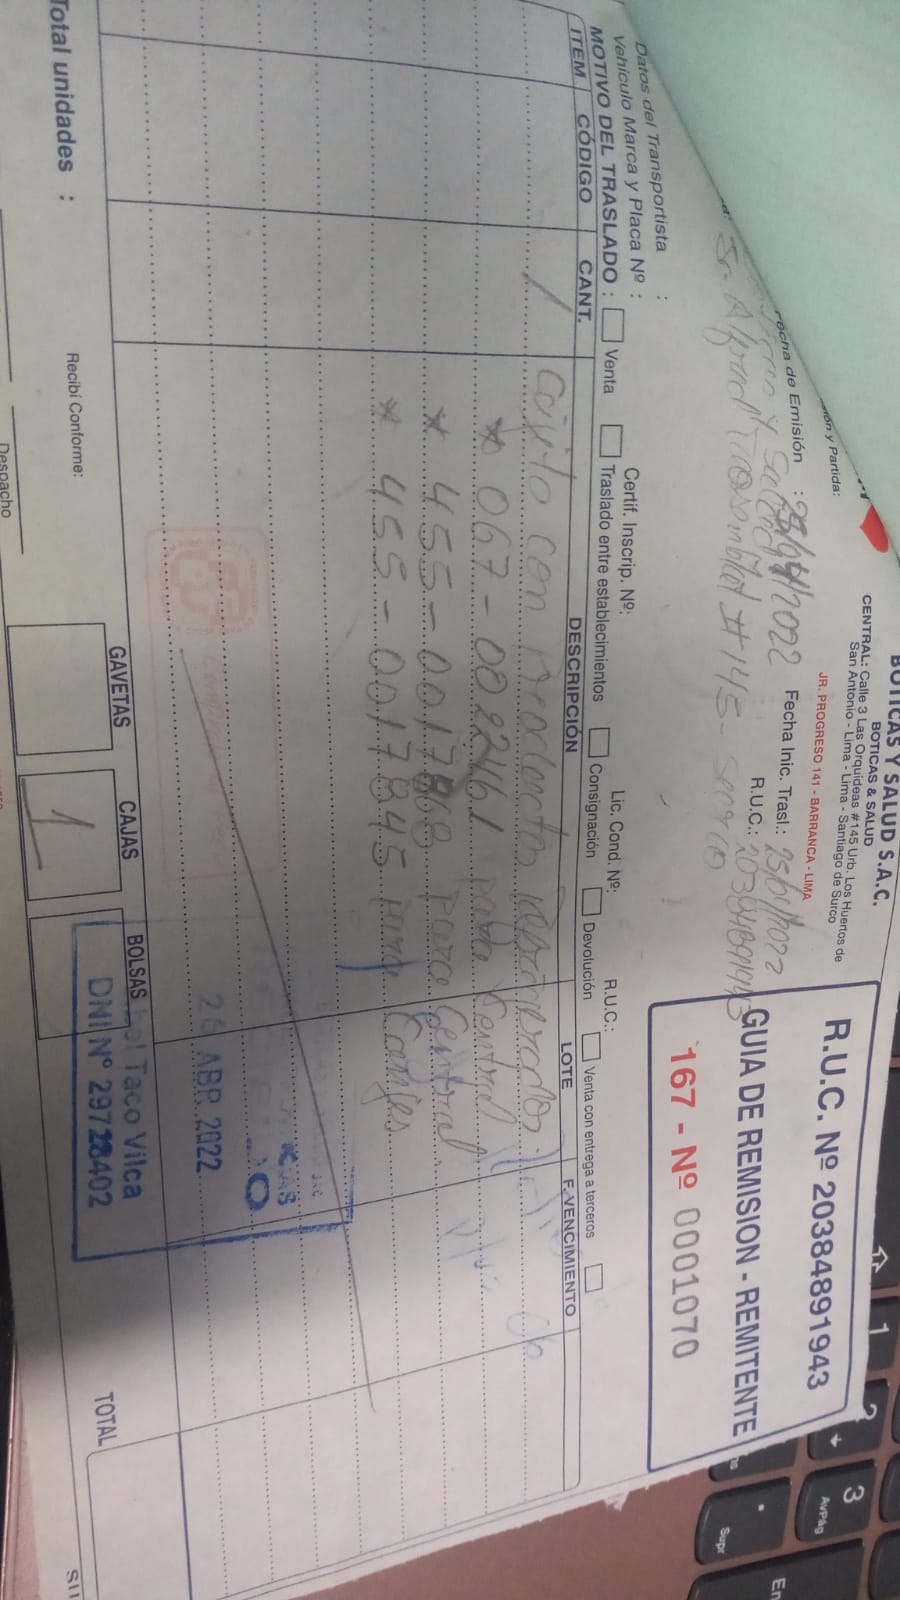 BOTICAS Y SALUD S.A.C.
BOTICAS & SALUD
CENTRAL: Calle 3 Las Orquideas #145 Urb. Los Huertos de
San Antonio - Lima - Lima - Santiago de Surco
JR. PROGRESO 141 - BARRANCA - LIMA
R.U.C. Nº 20384891943
GUIA DE REMISION - REMITENTE
167 - Nº 0001070
ión y Partida:
Fecha de Emisión : 25/04/2022 Fecha Inic. Trasl.: 25/04/2022
R.U.C.: 20384891943
#145 - Surco
Datos del Transportista :
Vehículo Marca y Placa Nº : Certif. Inscrip. Nº: Lic. Cond. Nº: R.U.C.:
MOTIVO DEL TRASLADO : Venta Traslado entre establecimientos Consignación Devolución Venta con entrega a terceros
ITEM CÓDIGO CANT. DESCRIPCIÓN LOTE F. VENCIMIENTO
1 Cajita con Productos
* 067-002246 para Central
* 455-0017868 para Central
* 455-0017845 para Canjes
26 ABR. 2022
Taco Vilca
DNI Nº 29728402
Total unidades :
GAVETAS CAJAS BOLSAS TOTAL
1
Recibí Conforme:
Despacho